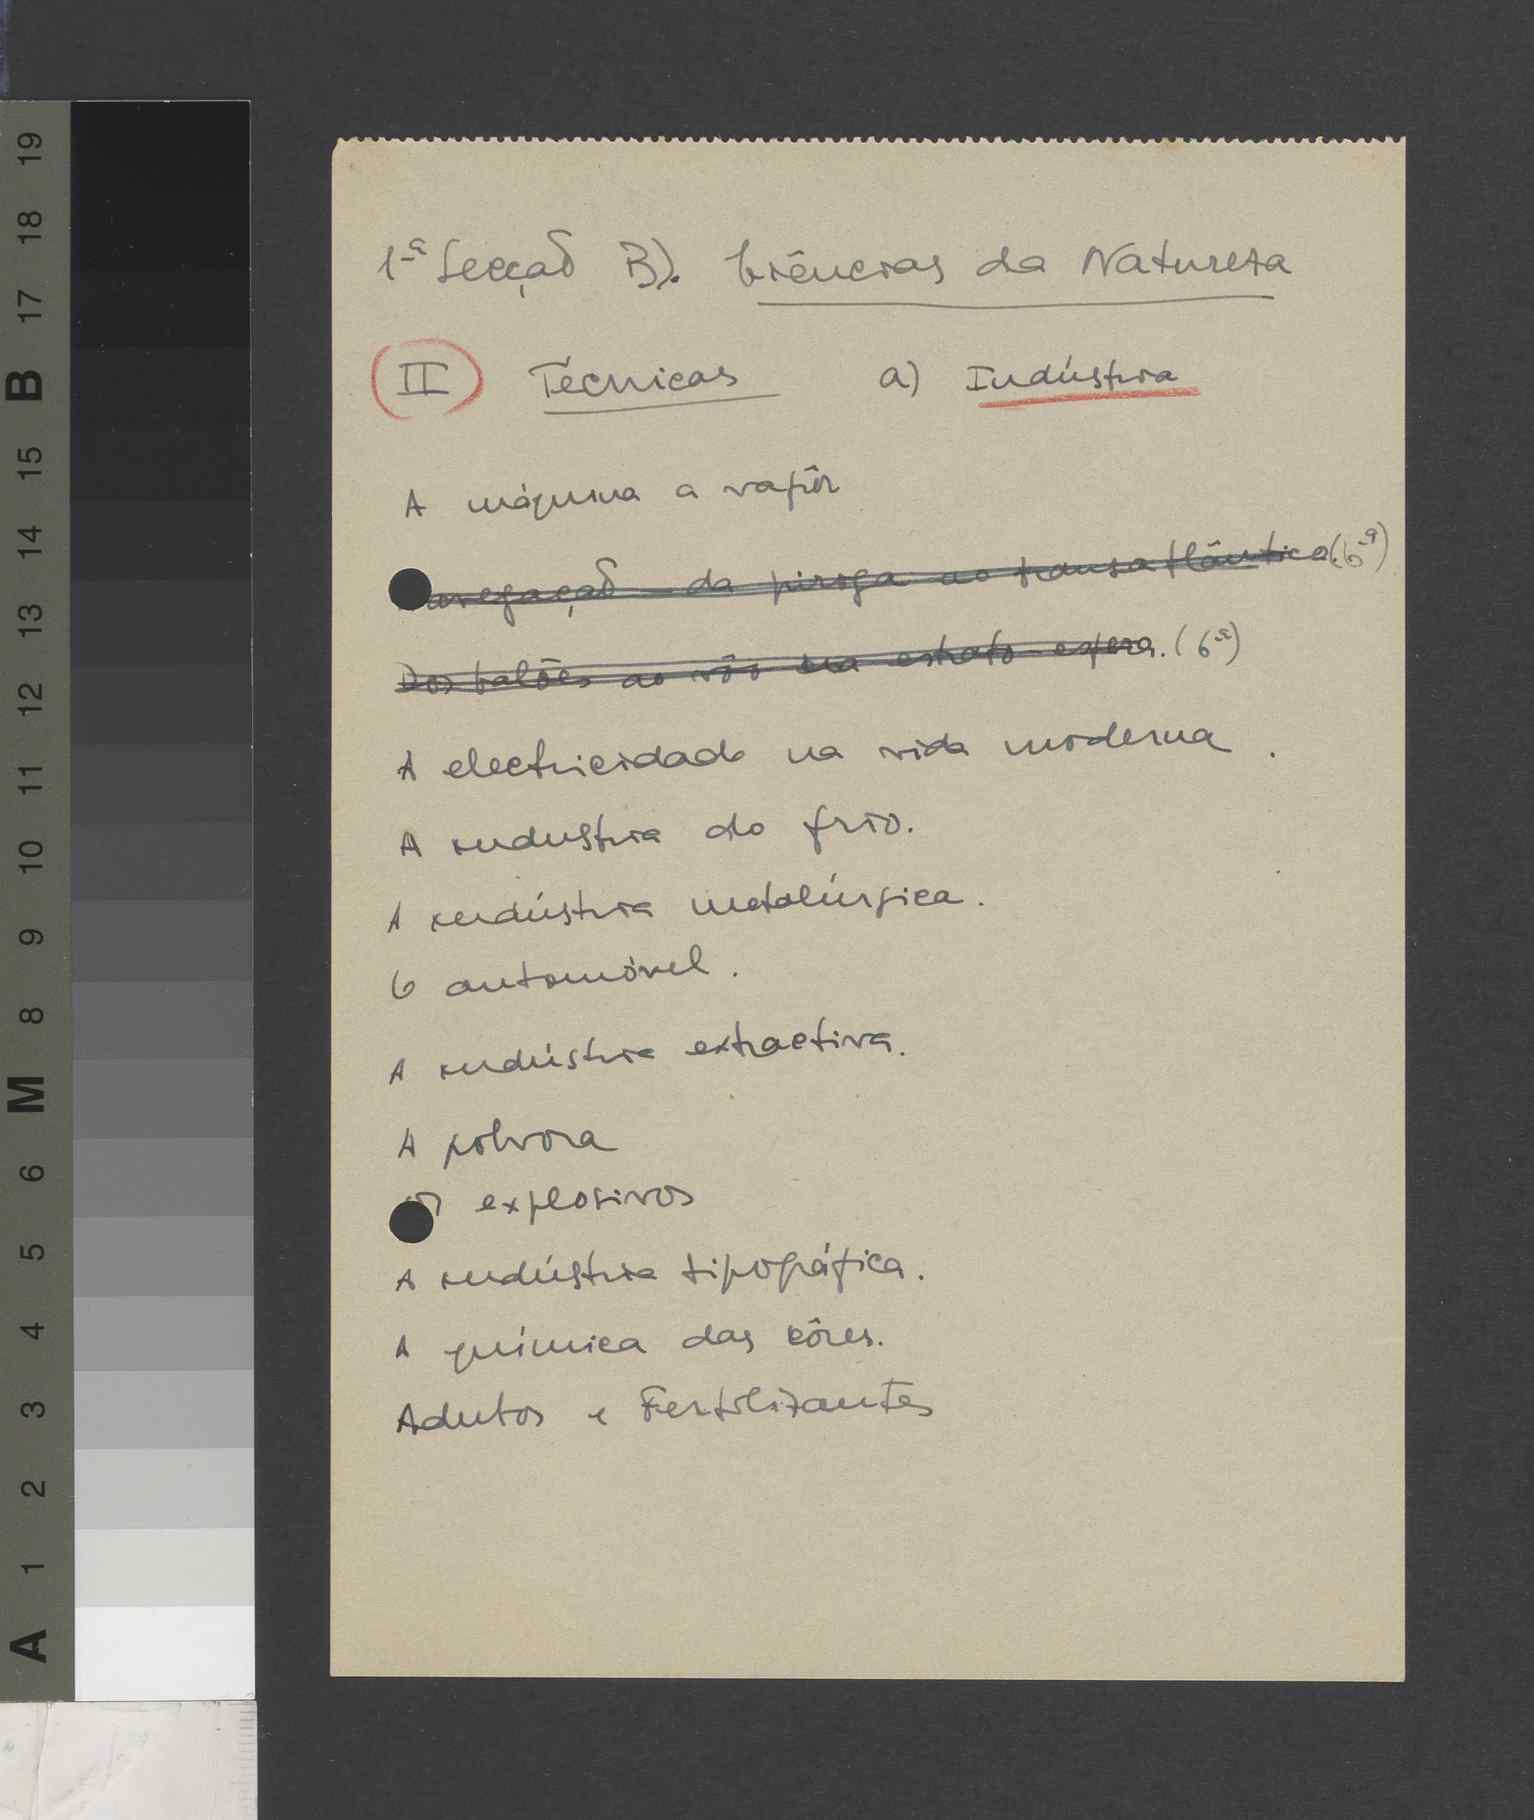 1ª Secção B). Ciências da Natureza
II Técnicas a) Indústria
A máquina a vapôr
avegação - da piroga ao transatlântico. (6ª)
Dos balões ao vôo na estratosfera. (6ª)
A electricidade na vida moderna.
A industria do frio.
A indústria metalúrgica.
O automóvel.
A indústria extractiva.
A polvora
Os explosivos
A indústria tipográfica.
A química das côres.
Adubos e Fertilizantes
A 1 2 3 4 5 6 M 8 9 10 11 12 13 14 15 B 17 18 19